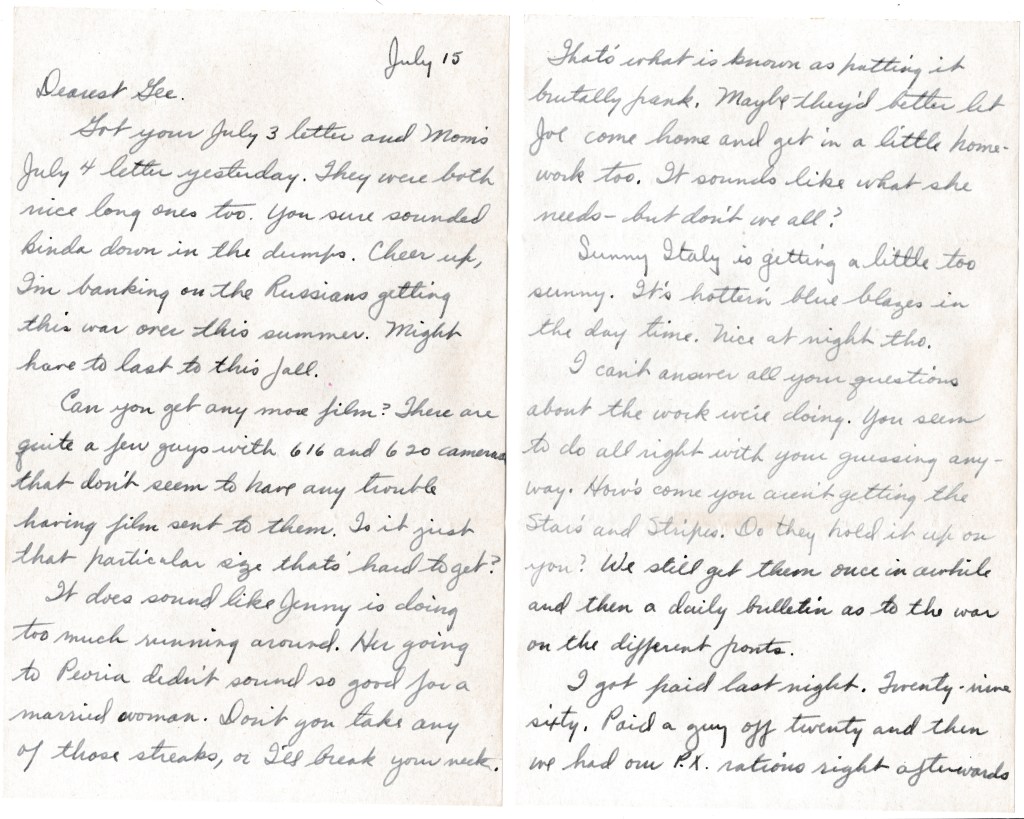 July 15
Dearest Gee.
Got your July 3 letter and Mom's
July 4 letter yesterday. They were both
nice long ones too. You sure sounded
kinda down in the dumps. Cheer up,
I'm banking on the Russians getting
this war over this summer. Might
have to last to this fall.
Can you get any more film? There are
quite a few guys with 616 and 620 cameras
that don't seem to have any trouble
having film sent to them. Is it just
that particular size that's hard to get?
It does sound like Jenny is doing
too much running around. Her going
to Peoria didn't sound so good for a
married woman. Don't you take any
of those streaks, or I'll break your neck.
That's what is known as putting it
brutally frank. Maybe they'd better let
Joe come home and get in a little home-
work too. It sounds like what she
needs - but don't we all?
Sunny Italy is getting a little too
sunny. It's hotter'n blue blazes in
the day time. Nice at night tho.
I can't answer all your questions
about the work we're doing. You seem
to do all right with your guessing any-
way. How's come you aren't getting the
Stars and Stripes. Do they hold it up on
you? We still get them once in awhile
and then a daily bulletin as to the war
on the different fronts.
I got paid last night. Twenty-nine
sixty. Paid a guy off twenty and then
we had our P.X. rations right afterwards